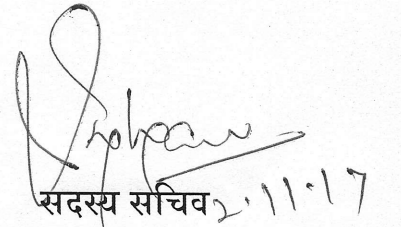 सदस्य सचिव 2.11.17